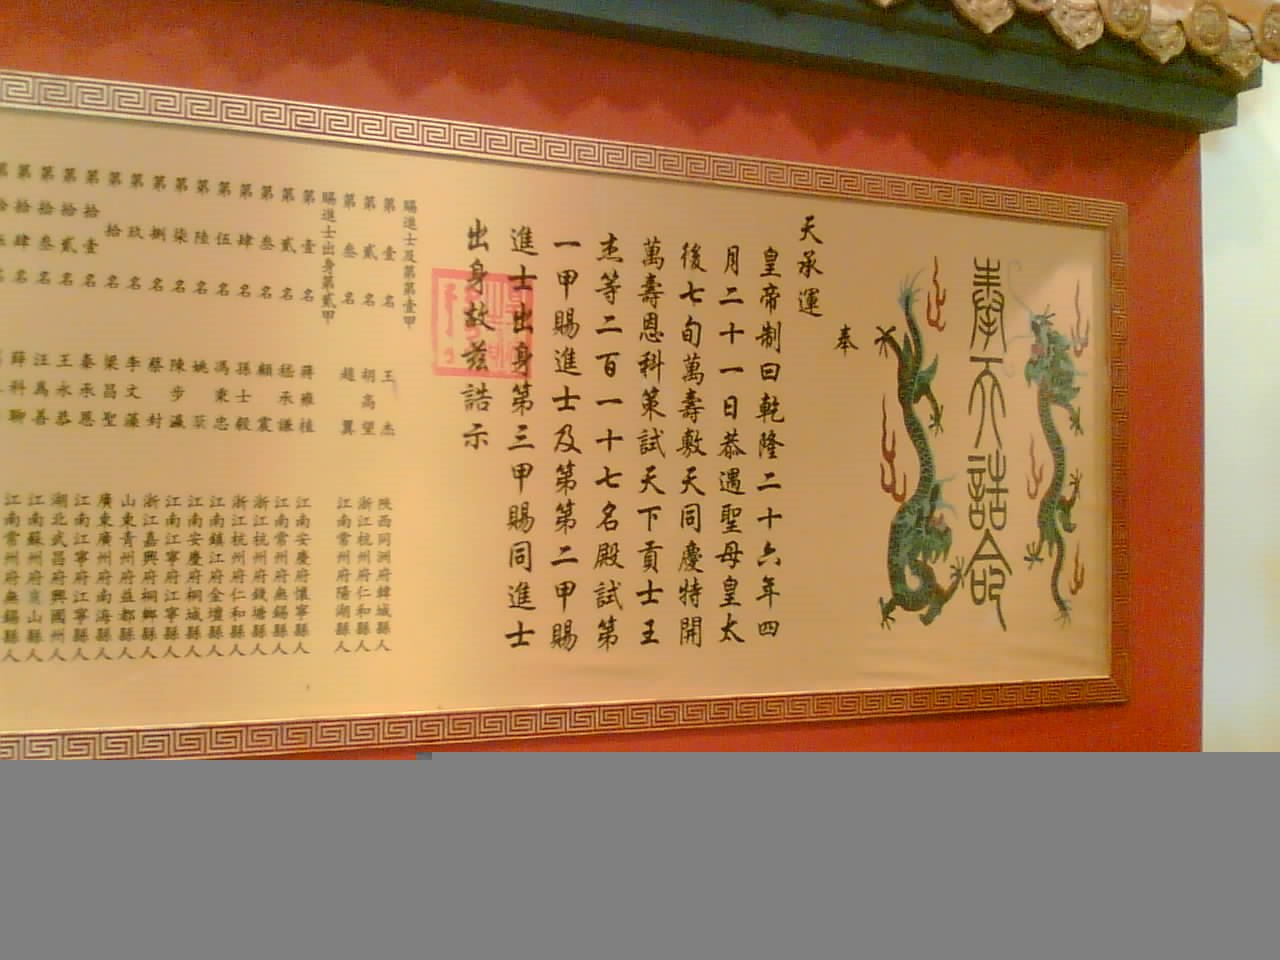 奉天誥命
奉
天承運
皇帝制曰乾隆二十六年四
月二十一日恭遇聖母皇太
後七旬萬壽敷天同慶特開
萬壽恩科策試天下貢士王
杰等二百一十七名殿試第
一甲賜進士及第第二甲賜
進士出身第三甲賜同進士
出身故茲誥示
賜進士及第第壹甲
第壹名 王杰 陝西同洲府韓城縣人
第貳名 胡高望 浙江杭州府仁和縣人
第叁名 趙翼 江南常州府陽湖縣人
賜進士出身第貳甲
第壹名 蔣雍植 江南安慶府懷寧縣人
第貳名 嵇承謙 江南常州府無錫縣人
第叁名 顧震 浙江杭州府錢塘縣人
第肆名 孫士毅 浙江杭州府仁和縣人
第伍名 馮秉忠 江南鎮江府金壇縣人
第陸名 姚棻 江南安慶府桐城縣人
第柒名 陳步瀛 江南江寧府江寧縣人
第捌名 蔡封 浙江嘉興府桐鄉縣人
第玖名 李文藻 山東青州府益都縣人
第拾名 梁昌聖 廣東廣州府南海縣人
第拾壹名 秦承恩 江南江寧府江寧縣人
第拾貳名 王永恭 湖北武昌府興國州人
第拾叁名 汪為善 江南蘇州府山縣人
第拾肆名 薛科聯 江南常州府無錫縣人